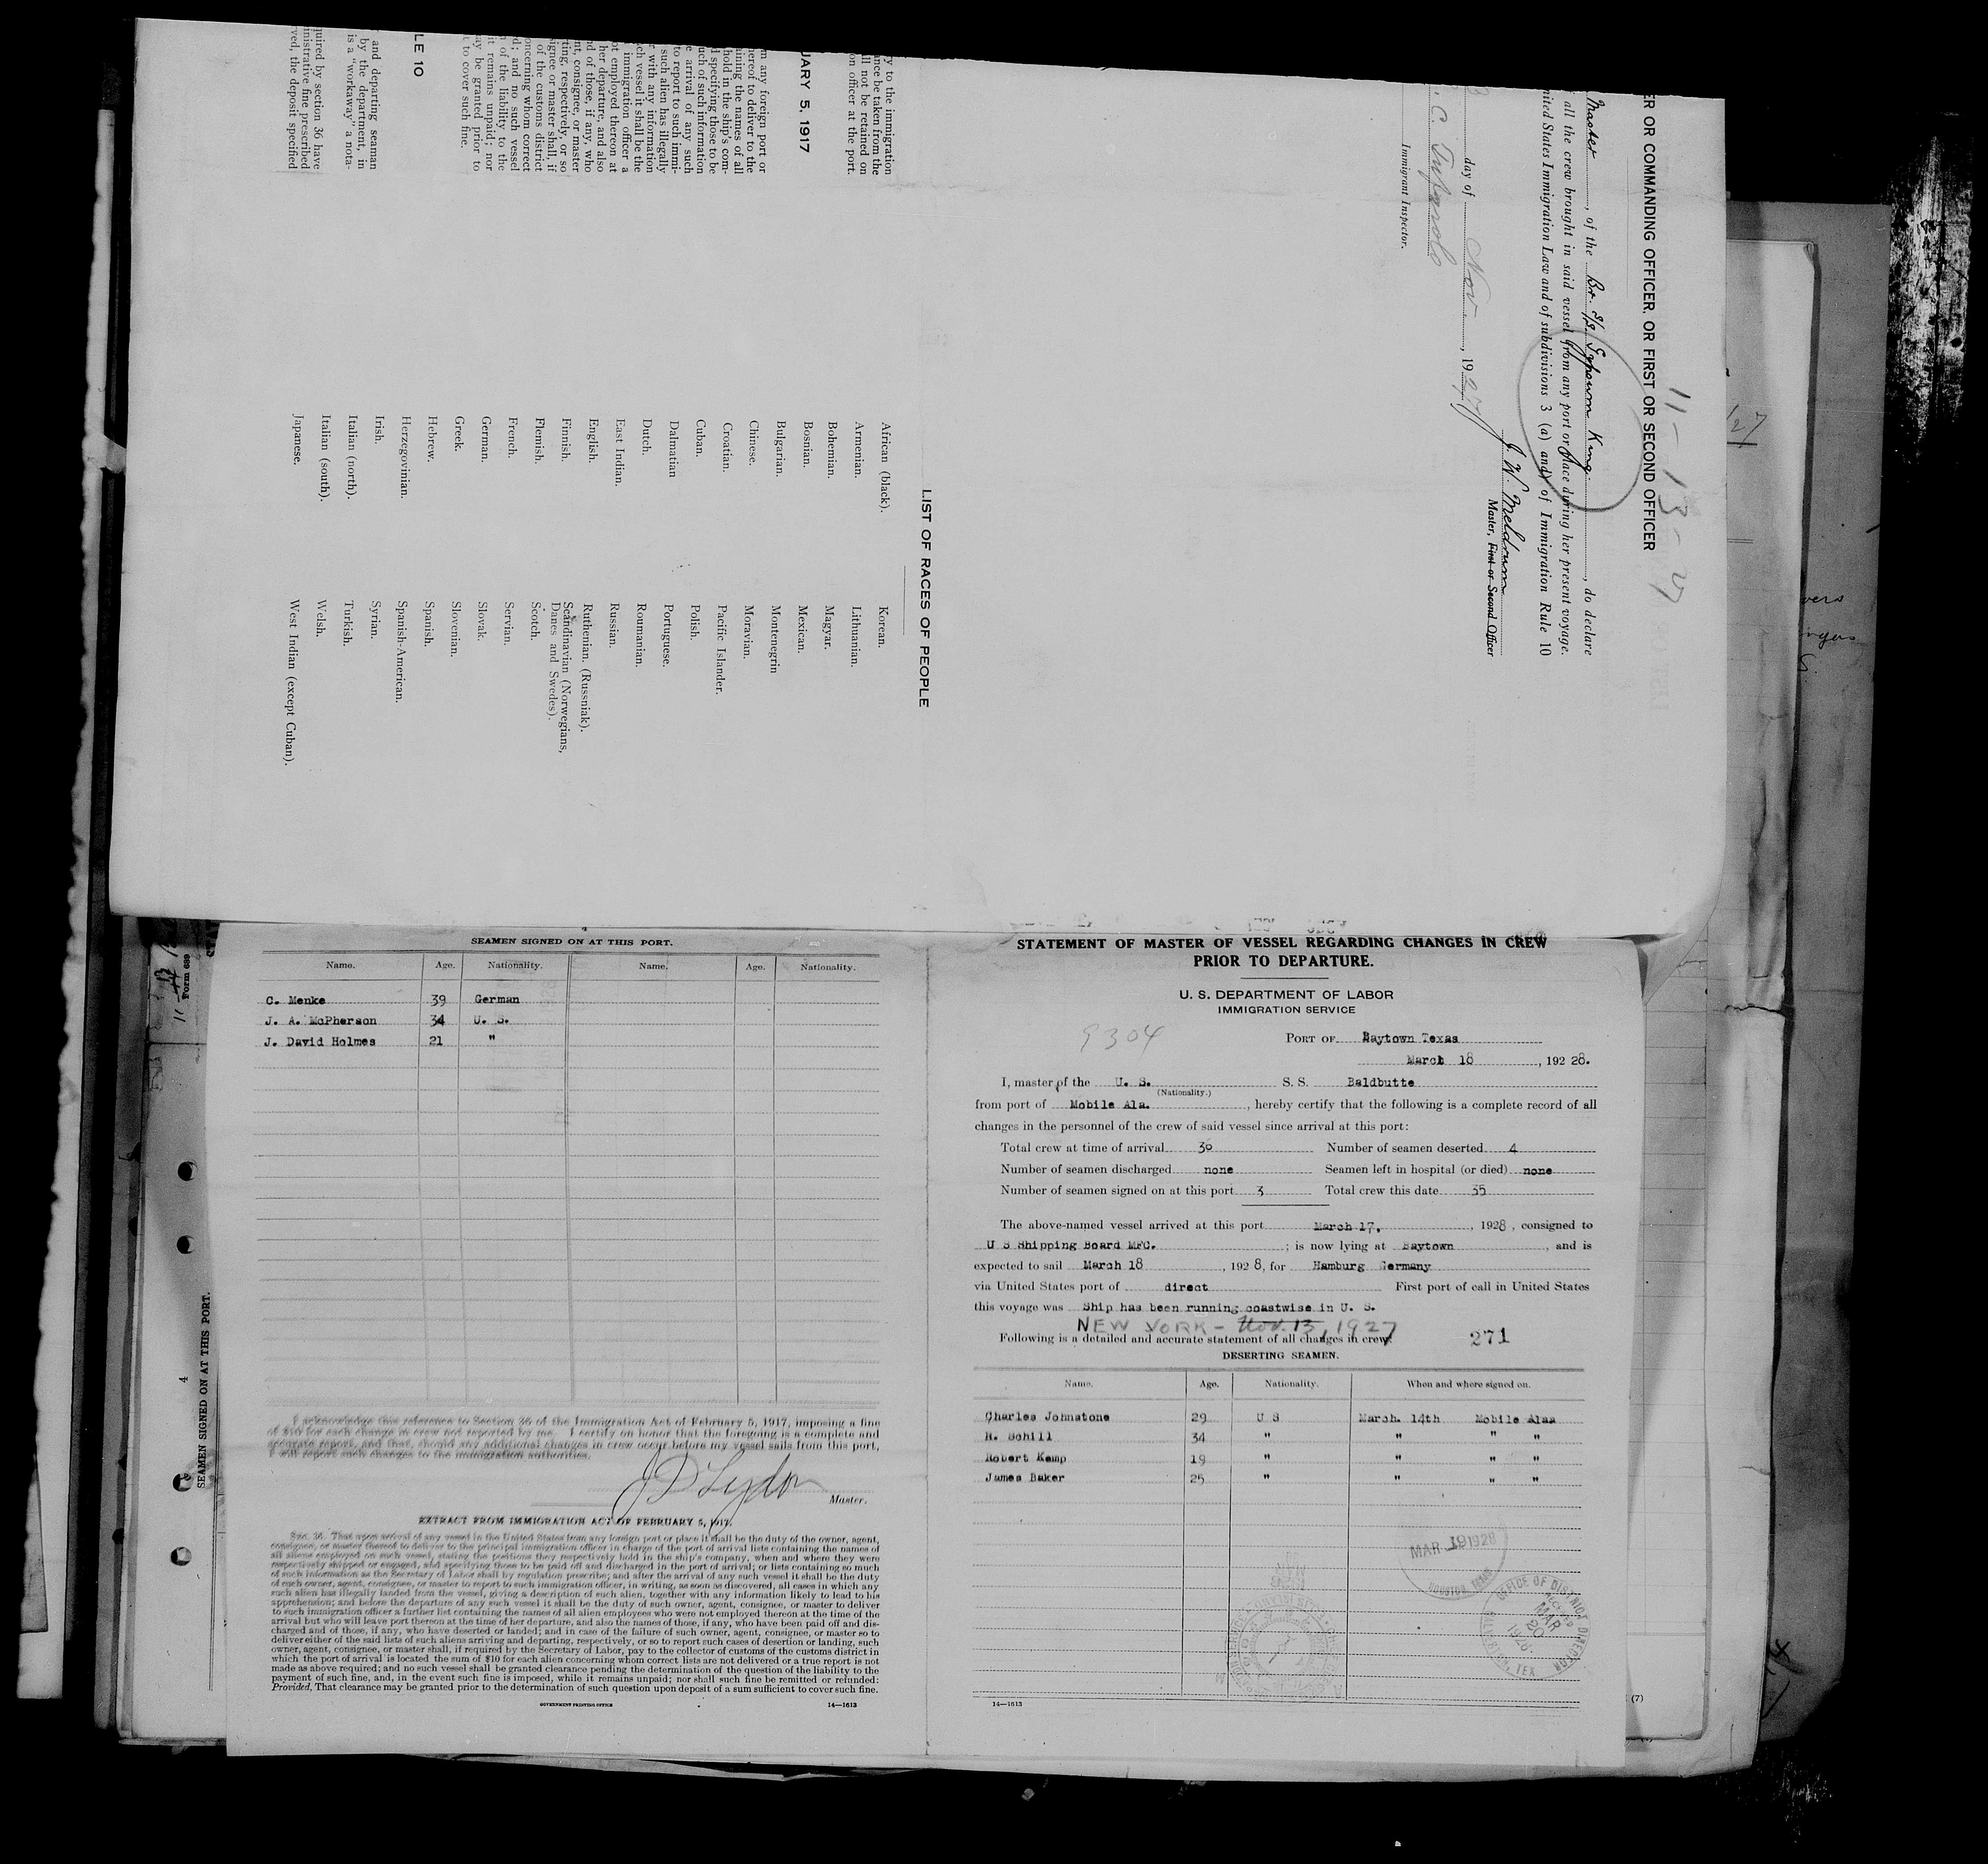 11-13-27
ER OR COMMANDING OFFICER, OR FIRST OR SECOND OFFICER
Master, of the Br. S/S. Gypsum King., do declare
all the crew brought in said vessel from any port or place during her present voyage.
nited States Immigration Law and of subdivisions 3 (a) and of Immigration Rule 10
J. W. Meldrum
Master, First or Second Officer
day of Nov., 1927
Immigrant Inspector.
LIST OF RACES OF PEOPLE
African (black).
Armenian.
Bohemian.
Bosnian.
Bulgarian.
Chinese.
Croatian.
Cuban.
Dalmatian
Dutch.
East Indian.
English.
Finnish.
Flemish.
French.
German.
Greek.
Hebrew.
Herzegovinian.
Irish.
Italian (north).
Italian (south).
Japanese.
Korean.
Lithuanian.
Magyar.
Mexican.
Montenegrin
Moravian.
Pacific Islander.
Polish.
Portuguese.
Roumanian.
Russian.
Ruthenian. (Russniak).
Scandinavian (Norwegians,
Danes and Swedes).
Scotch.
Servian.
Slovak.
Slovenian.
Spanish.
Spanish-American.
Syrian.
Turkish.
Welsh.
West Indian (except Cuban).
y to the immigration
ance be taken from the
ll not be retained on
on officer at the port.
UARY 5, 1917
m any foreign port or
hereof to deliver to the
aining the names of all
hold in the ship's com-
d specifying those to be
uch of such information
e arrival of any such
to report to such immi-
such alien has illegally
r with any information
ch vessel it shall be the
immigration officer a
ot employed thereon at
her departure, and also
nd of those, if any, who
nt, consignee, or master
ting, respectively, or so
ignee or master shall, if
of the customs district
oncerning whom correct
d; and no such vessel
n of the liability to the
it remains unpaid; nor
ay be granted prior to
t to cover such fine.
LE 10
and departing seaman
by the department, in
is a "workaway" a nota-
quired by section 36 have
ministrative fine prescribed
ved, the deposit specified
Form 689
SEAMEN SIGNED ON AT THIS PORT.
4
SEAMEN SIGNED ON AT THIS PORT.
Name. Age. Nationality. Name. Age. Nationality.
C. Menke 39 German
J. A. McPherson 34 U. S.
J. David Holmes 21 "
I acknowledge this reference to Section 36 of the Immigration Act of February 5, 1917, imposing a fine
of $10 for each change in crew not reported by me. I certify on honor that the foregoing is a complete and
accurate report, and that, should any additional changes in crew occur before my vessel sails from this port,
I will report such changes to the immigration authorities.
J D Lydon
Master.
EXTRACT FROM IMMIGRATION ACT OF FEBRUARY 5, 1917.
SEC. 36. That upon arrival of any vessel in the United States from any foreign port or place it shall be the duty of the owner, agent,
consignee, or master thereof to deliver to the principal immigration officer in charge of the port of arrival lists containing the names of
all aliens employed on such vessel, stating the positions they respectively hold in the ship's company, when and where they were
respectively shipped or engaged, and specifying those to be paid off and discharged in the port of arrival; or lists containing so much
of such information as the Secretary of Labor shall by regulation prescribe; and after the arrival of any such vessel it shall be the duty
of such owner, agent, consignee, or master to report to such immigration officer, in writing, as soon as discovered, all cases in which any
such alien has illegally landed from the vessel, giving a description of such alien, together with any information likely to lead to his
apprehension; and before the departure of any such vessel it shall be the duty of such owner, agent, consignee, or master to deliver
to such immigration officer a further list containing the names of all alien employees who were not employed thereon at the time of the
arrival but who will leave port thereon at the time of her departure, and also the names of those, if any, who have been paid off and dis-
charged and of those, if any, who have deserted or landed; and in case of the failure of such owner, agent, consignee, or master so to
deliver either of the said lists of such aliens arriving and departing, respectively, or so to report such cases of desertion or landing, such
owner, agent, consignee, or master shall, if required by the Secretary of Labor, pay to the collector of customs of the customs district in
which the port of arrival is located the sum of $10 for each alien concerning whom correct lists are not delivered or a true report is not
made as above required; and no such vessel shall be granted clearance pending the determination of the question of the liability to the
payment of such fine, and, in the event such fine is imposed, while it remains unpaid; nor shall such fine be remitted or refunded:
Provided, That clearance may be granted prior to the determination of such question upon deposit of a sum sufficient to cover such fine.
GOVERNMENT PRINTING OFFICE 14—1613
STATEMENT OF MASTER OF VESSEL REGARDING CHANGES IN CREW
PRIOR TO DEPARTURE.
U. S. DEPARTMENT OF LABOR
IMMIGRATION SERVICE
9304
PORT OF Baytown Texas
March 18, 192 28.
I, master of the U. S. S. S. Baldbutte
(Nationality.)
from port of Mobile Ala., hereby certify that the following is a complete record of all
changes in the personnel of the crew of said vessel since arrival at this port:
Total crew at time of arrival 30 Number of seamen deserted 4
Number of seamen discharged none Seamen left in hospital (or died) none
Number of seamen signed on at this port 3 Total crew this date 35
The above-named vessel arrived at this port March 17, 1928, consigned to
U S Shipping Board MFC.; is now lying at Baytown, and is
expected to sail March 18, 192 8, for Hamburg Germany
via United States port of direct First port of call in United States
this voyage was Ship has been running coastwise in U. S.
NEW YORK - Nov. 13, 1927
Following is a detailed and accurate statement of all changes in crew: 271
DESERTING SEAMEN.
Name. Age. Nationality. When and where signed on.
Charles Johnstone 29 U S March. 14th Mobile Alaa
R. Schill 34 " " " "
Robert Kemp 19 " " " "
James Baker 25 " " " "
MAR 19 1928
HOUSTON, TEXAS
OFFICE OF DISTRICT DIRECTOR
MAR 20 1928
GALVESTON, TEX
14—1613
(7)